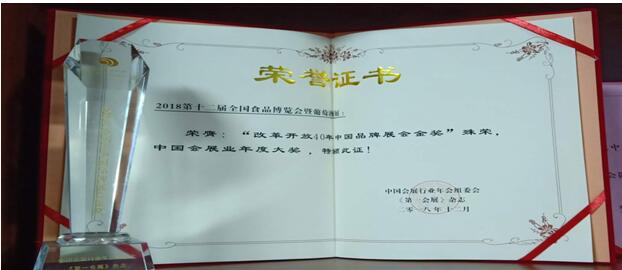 荣誉证书
2018第十二届全国食品博览会暨葡萄酒展：
荣膺：“改革开放40年中国品牌展会金奖”殊荣，
中国会展业年度大奖，特颁此证！
中国会展行业年会组委会
《第一会展》杂志
二〇一八年十二月
《第一会展》杂志